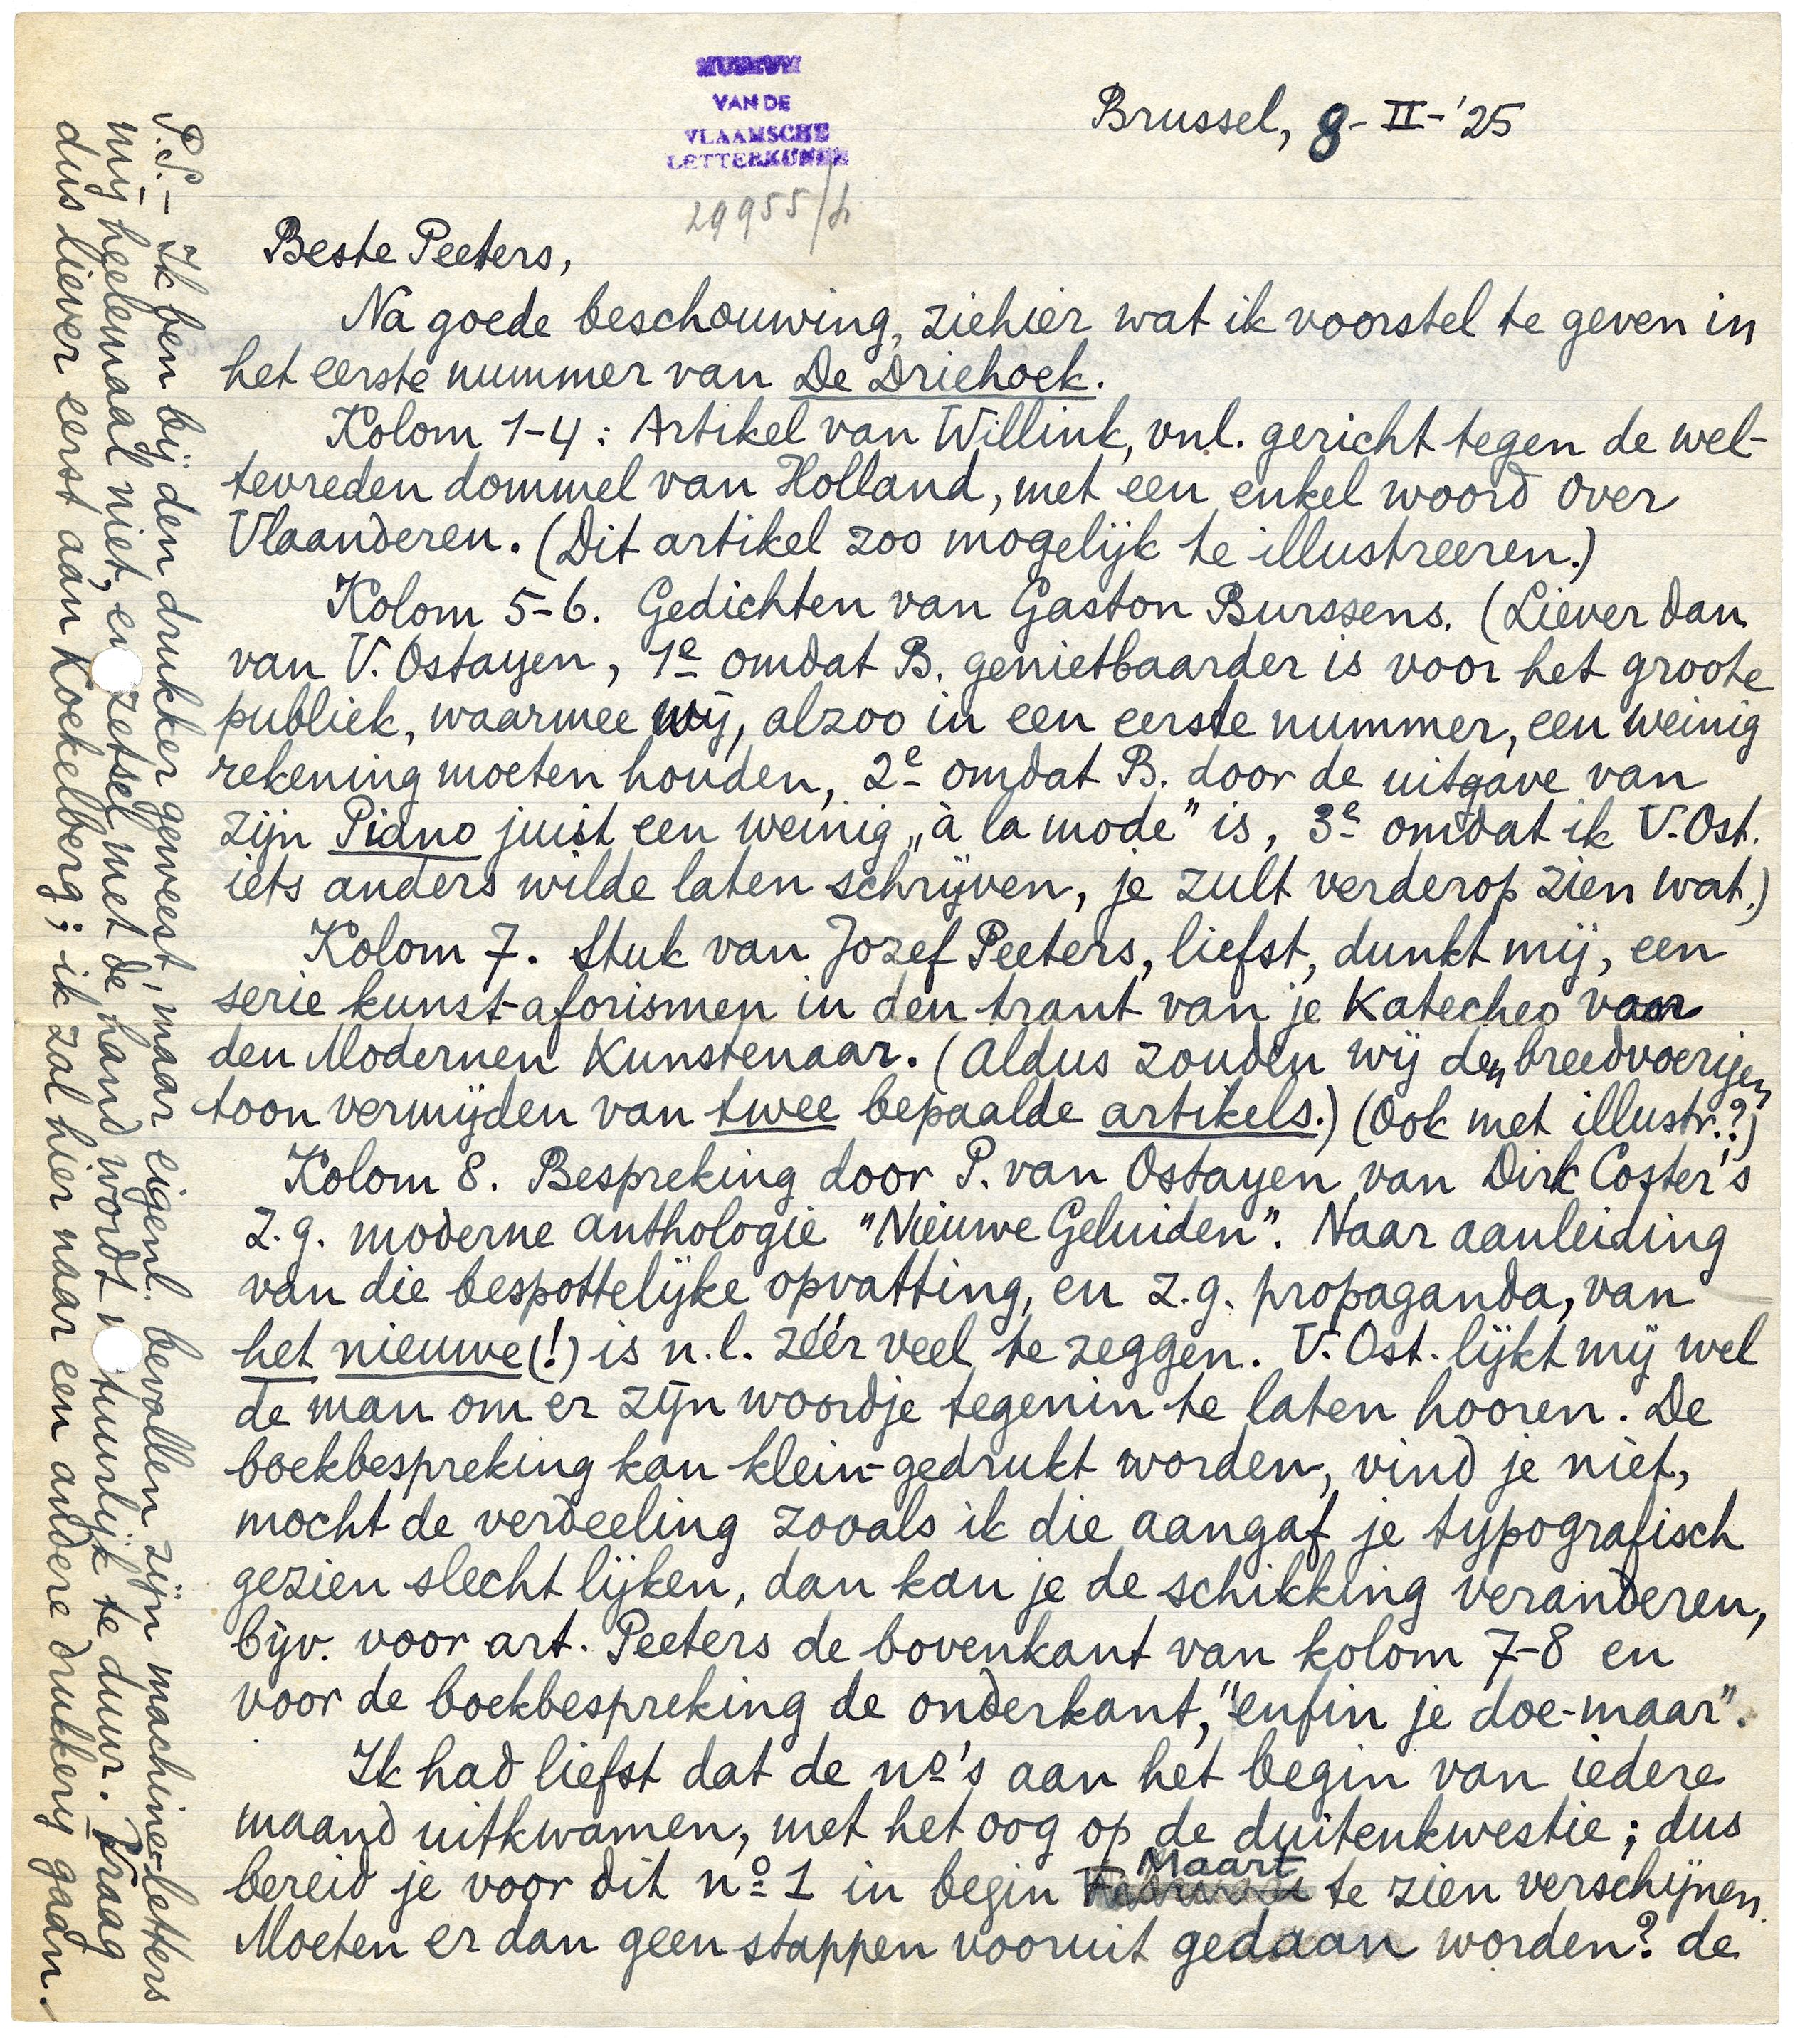 MUSEUM
VAN DE
VLAAMSCHE
LETTERKUNDE
29955/
Brussel, 8-II-'25
Beste Peeters,
Na goede beschouwing, ziehier wat ik voorstel te geven in
het eerste nummer van De Driehoek.
Kolom 1-4: Artikel van Willink, vnl. gericht tegen de wel-
tevreden dommel van Holland, met een enkel woord over
Vlaanderen. (Dit artikel zoo mogelijk te illustreeren.)
Kolom 5-6. Gedichten van Gaston Burssens. (Liever dan
van V. Ostayen, 1e omdat B. genietbaarder is voor het groote
publiek, waarmee wij, alzoo in een eerste nummer, een weinig
rekening moeten houden, 2e omdat B. door de uitgave van
zijn Piano juist een weinig „à la mode” is, 3e omdat ik V. Ost.
iets anders wilde laten schrijven, je zult verderop zien wat.)
Kolom 7. Stuk van Jozef Peeters, liefst, dunkt mij, een
serie kunst-aforismen in den trant van je Katecheo voor
den Modernen Kunstenaar. (Aldus zouden wij den breedvoerigen
toon vermijden van twee bepaalde artikels.) (Ook met illustr.?)
Kolom 8. Bespreking door P. van Ostayen van Dirk Coster's
z.g. moderne anthologie "Nieuwe Geluiden". Naar aanleiding
van die bespottelijke opvatting, en z.g. propaganda, van
het nieuwe(!) is n.l. zéér veel te zeggen. V. Ost. lijkt mij wel
de man om er zijn woordje tegenin te laten hooren. De
boekbespreking kan klein-gedrukt worden, vind je niet,
mocht de verdeeling zooals ik die aangaf je typografisch
gezien slecht lijken, dan kan je de schikking veranderen,
bijv. voor art. Peeters de bovenkant van kolom 7-8 en
voor de boekbespreking de onderkant, "enfin je doe-maar".
Ik had liefst dat de no's aan het begin van iedere
maand uitkwamen, met het oog op de duitenkwestie; dus
bereid je voor dit no 1 in begin Maart te zien verschijnen.
Moeten er dan geen stappen vooruit gedaan worden? de
P.S.- Ik ben bij den drukker geweest, maar eigenl. bevallen zijn machine-letters
mij heelemaal niet, en zetsel met de hand wordt natuurlijk te duur. Vraag
dus liever eerst aan Koekelberg; ik zal hier naar een andere drukkerij gaan.